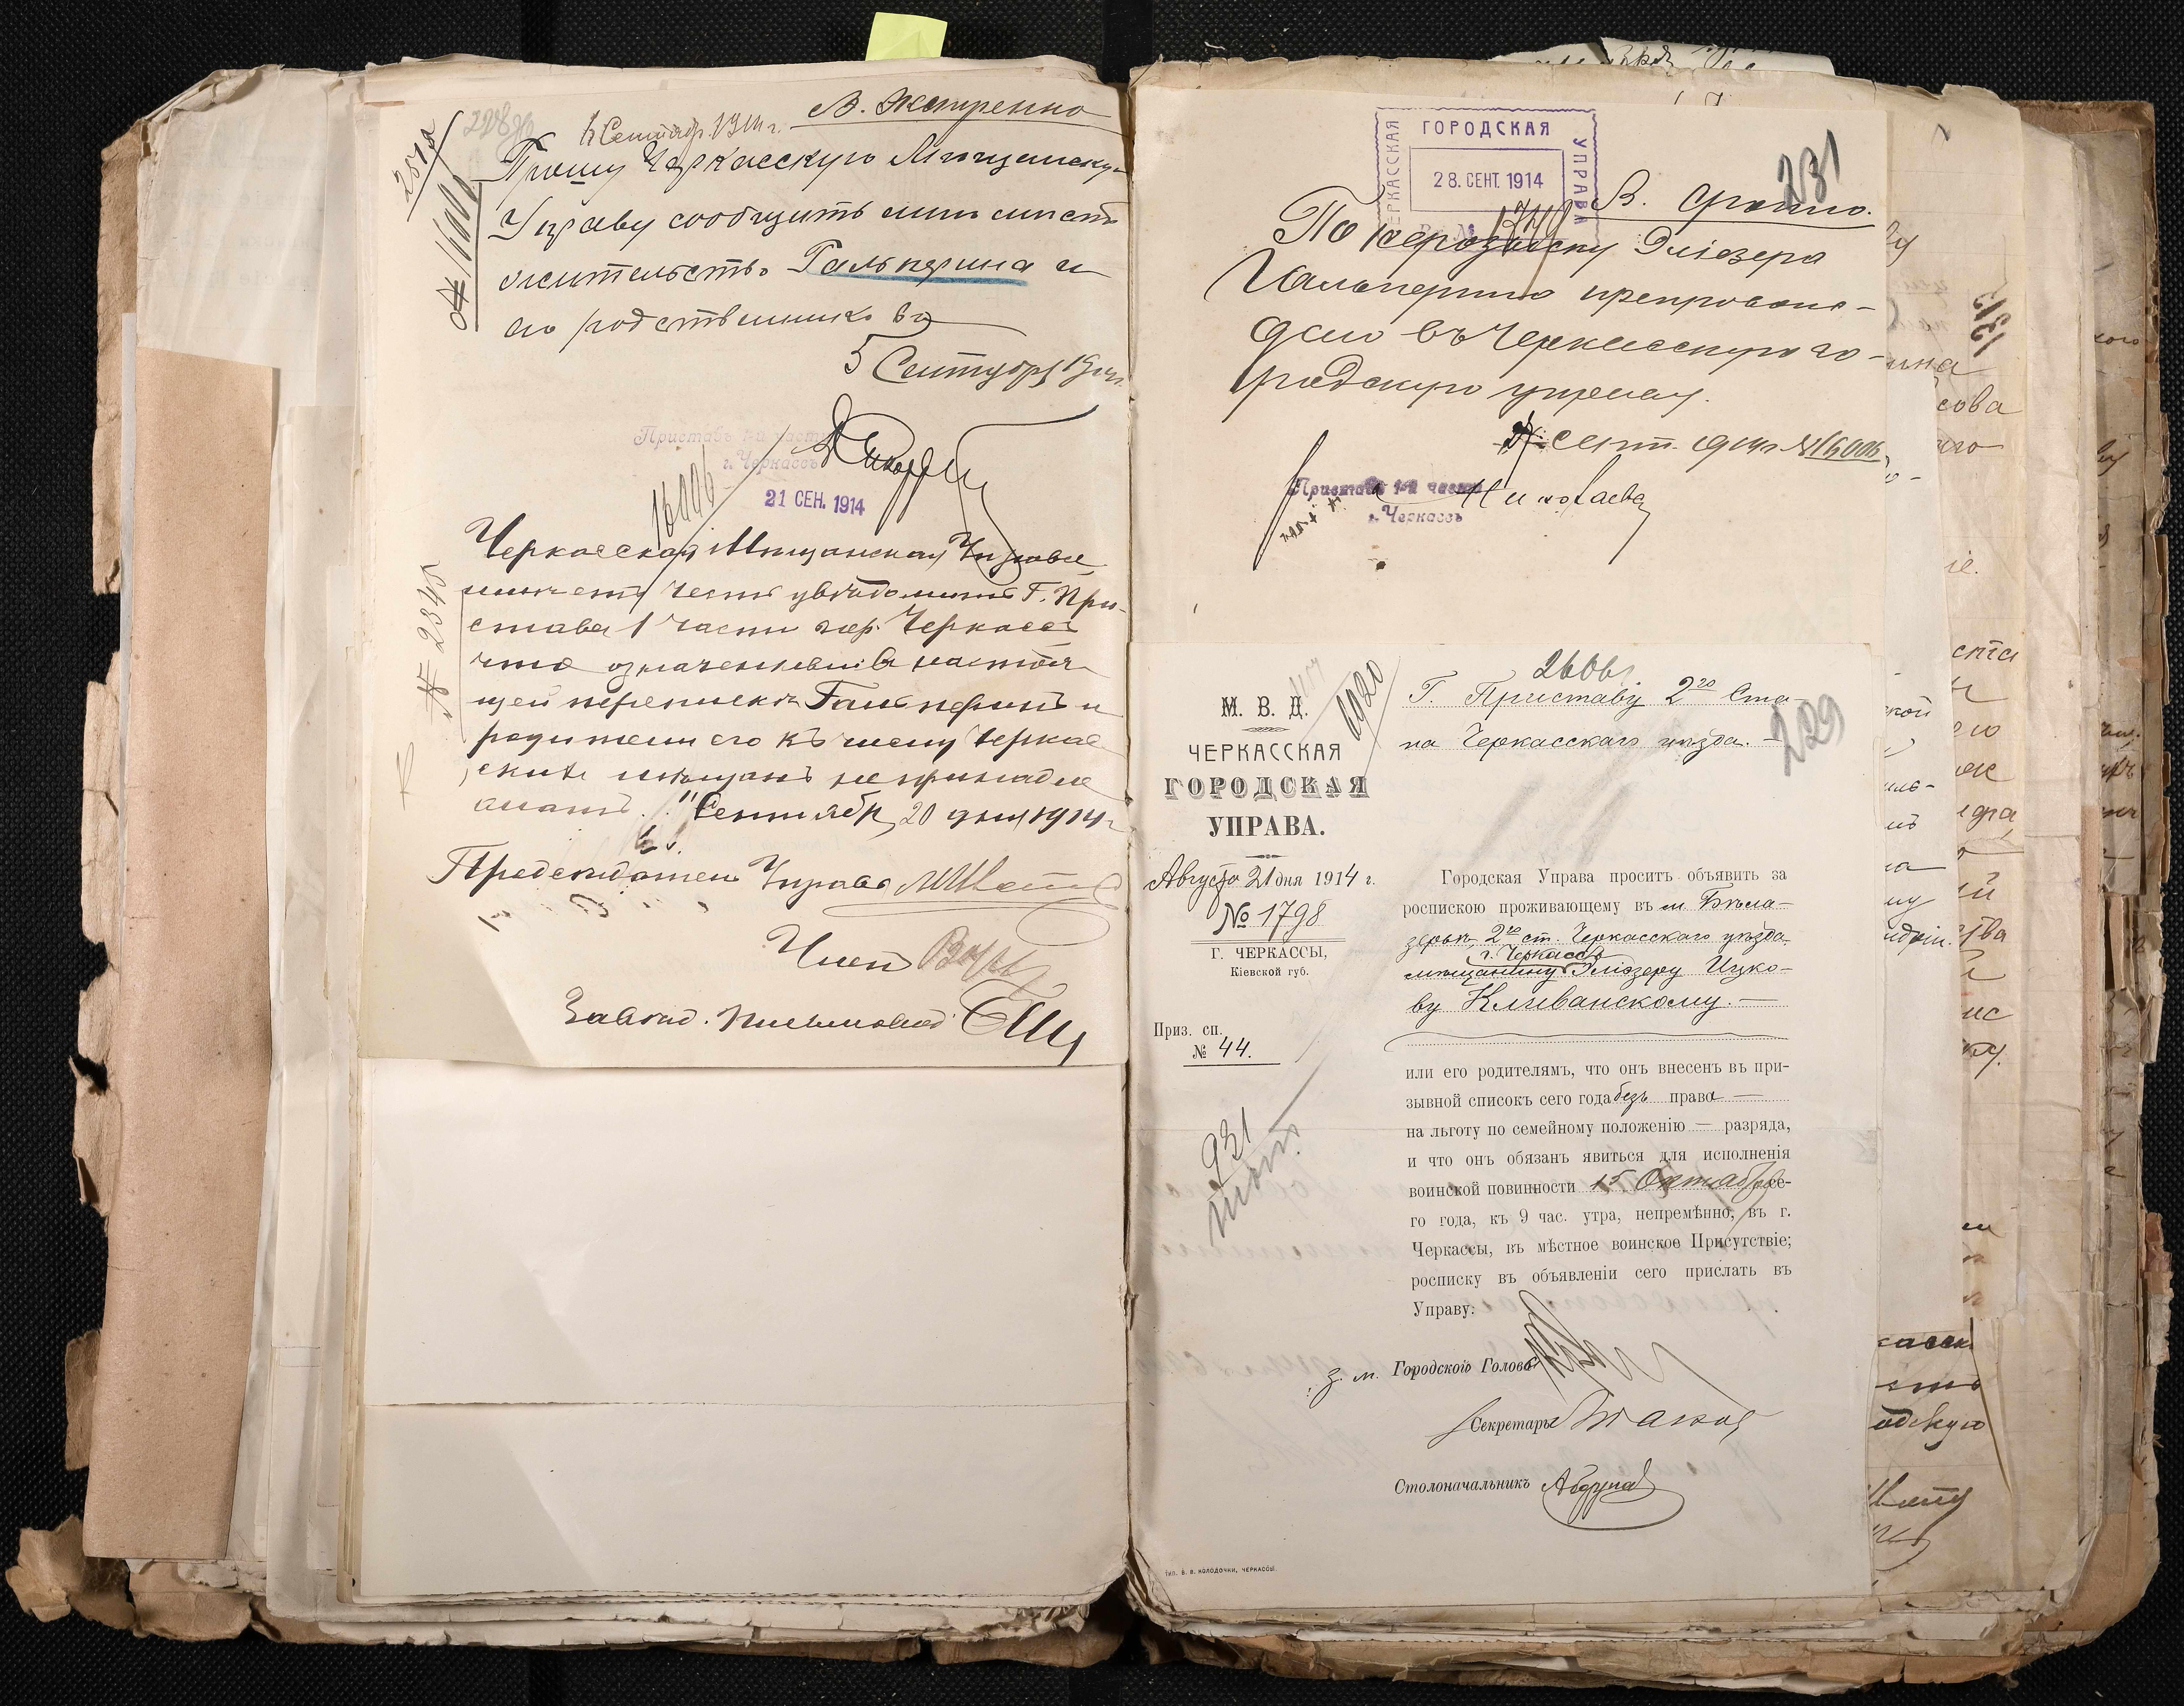 В. Экстренно
Сентябр. 1914 г.
Прошу Черкасскую Мещанску-
Управу сообщить
жительство Гальперина и
его родственников
5 Сентября 1914
№ 16006
Приставъ 1-й части
г. Черкассъ
21 СЕН. 1914
16006
№ 2345
Черкасская Мещанская Управа
имеетъ честь увѣдомить Г. При-
става 1 части гор. Черкассъ
что означенный въ настоя-
щей перепискѣ Гальперинъ и
родители его къ числу Черкас
скихъ мѣщанъ не принадле
жатъ. Сентября 20 дня 1914 г
Предсѣдатель Управы
Членъ
Завѣд. письмовод.
ЧЕРКАССКАЯ ГОРОДСКАЯ УПРАВА
28. СЕНТ. 1914
231
В. срочно.
По розыску Эліозера
Гальперина препровож-
дено въ Черкасскую го-
родскую управу.
сент. 1914 г. № 16006
Приставъ 1-й части
г. Черкассъ
Николаева
229
2606
1920
М. В. Д.
ЧЕРКАССКАЯ
ГОРОДСКАЯ
УПРАВА.
Августа 21 дня 1914 г.
№ 1798
Г. ЧЕРКАССЫ,
Кіевской губ.
Приз. сп.
№ 44.
931
Г. Приставу 2го Ста-
на Черкасскаго уѣзда.
Городская Управа проситъ объявить за
роспискою проживающему въ м. Бѣло-
зерьи, 2го ст. Черкасскаго уѣзда
г. Черкассъ
мѣщанину Эліозеру Ицко-
ву Кливанскому. —
или его родителямъ, что онъ внесенъ въ при-
зывной списокъ сего года безъ права —
на льготу по семейному положенію — разряда,
и что онъ обязанъ явиться для исполненія
воинской повинности 15 Октября се-
го года, къ 9 час. утра, непремѣнно, въ г.
Черкассы, въ мѣстное воинское Присутствіе;
росписку въ объявленіи сего прислать въ
Управу.
з. м. Городского Головы
Секретарь
Столоначальникъ
Тип. В. В. КОЛОДОЧКИ, ЧЕРКАССЫ.